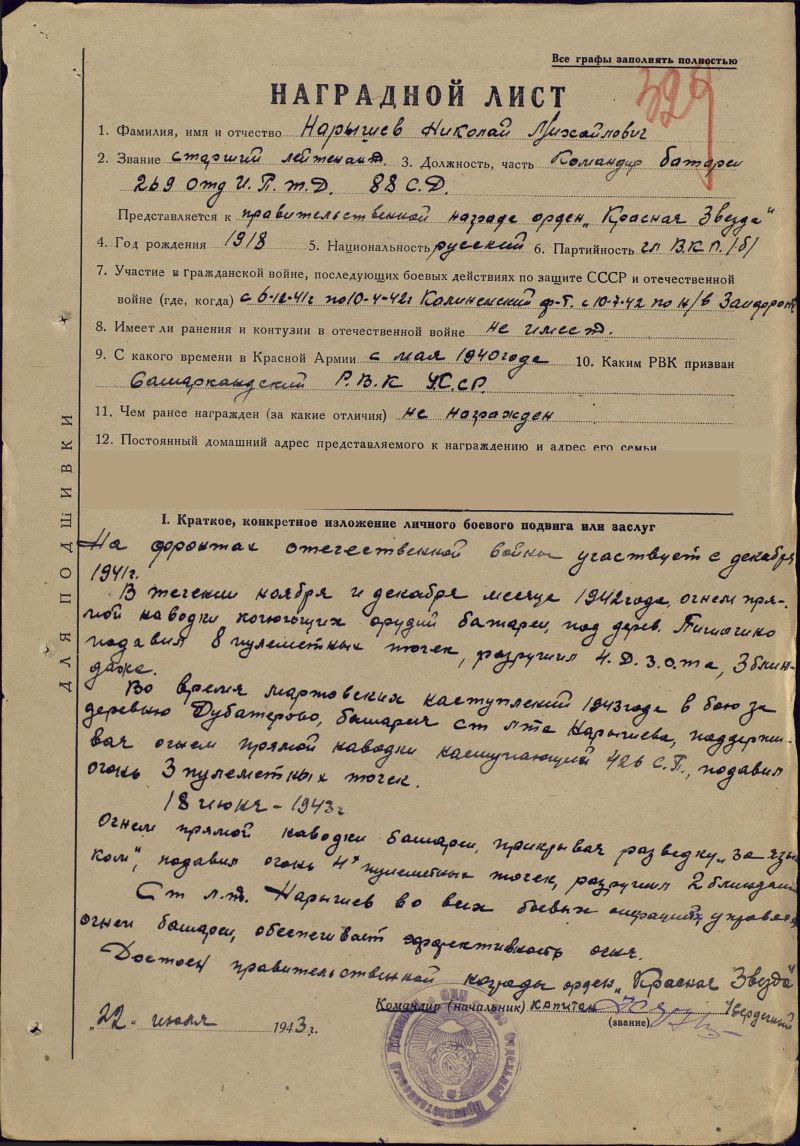 Все графы заполнять полностью
329
НАГРАДНОЙ ЛИСТ
1. Фамилия, имя и отчество Нарышев Николай Михайлович
2. Звание старший лейтенант. 3. Должность, часть Командир батареи
269 отд И.П.Т.Д. 88 С.Д.
Представляется к правительственной награде орден „Красная Звезда"
4. Год рождения 1918 5. Национальность русский 6. Партийность чл В.К.П./б/
7. Участие в гражданской войне, последующих боевых действиях по защите СССР и отечественной
войне (где, когда) с 6-12-41г по 10-4-42г Калиненский ф-т. с 10-7-42 по н/в Запфронт
8. Имеет ли ранения и контузии в отечественной войне не имеет.
9. С какого времени в Красной Армии с мая 1940 года 10. Каким РВК призван
Самаркандский Р.В.К УССР.
11. Чем ранее награжден (за какие отличия) не награжден
12. Постоянный домашний адрес представляемого к награждению и адрес его семьи
ДЛЯ ПОДШИВКИ
I. Краткое, конкретное изложение личного боевого подвига или заслуг
На фронтах отечественной войны участвует с декабря
1941г.
В течении ноября и декабря месяце 1942 года, огнем пря-
мой наводки кочующих орудий батареи, под дерев.
подавил 8 пулеметных точек, разрушил 4. Д.З.О.Та, 3 блин-
дажа.
Во время мартовских наступлений 1943 года в бою за
деревню батарея ст л-та Нарышева, поддержи-
вая огнем прямой наводки наступающий 426 С.П., подавил
огонь 3 пулеметных точек.
18 июня - 1943г
Огнем прямой наводки батареи, прикрывая разведку „за язы
ком", подавил огонь 4х пулеметных точек, разрушил 2 блиндажа
Ст л-т. Нарышев во всех боевых операциях управляя
огнем батареи, обеспечивает эффективность огня.
Достоен правительственной награды орден „Красная Звезда"
Командир (начальник) капитан
(звание)
„22" июля 1943 г.